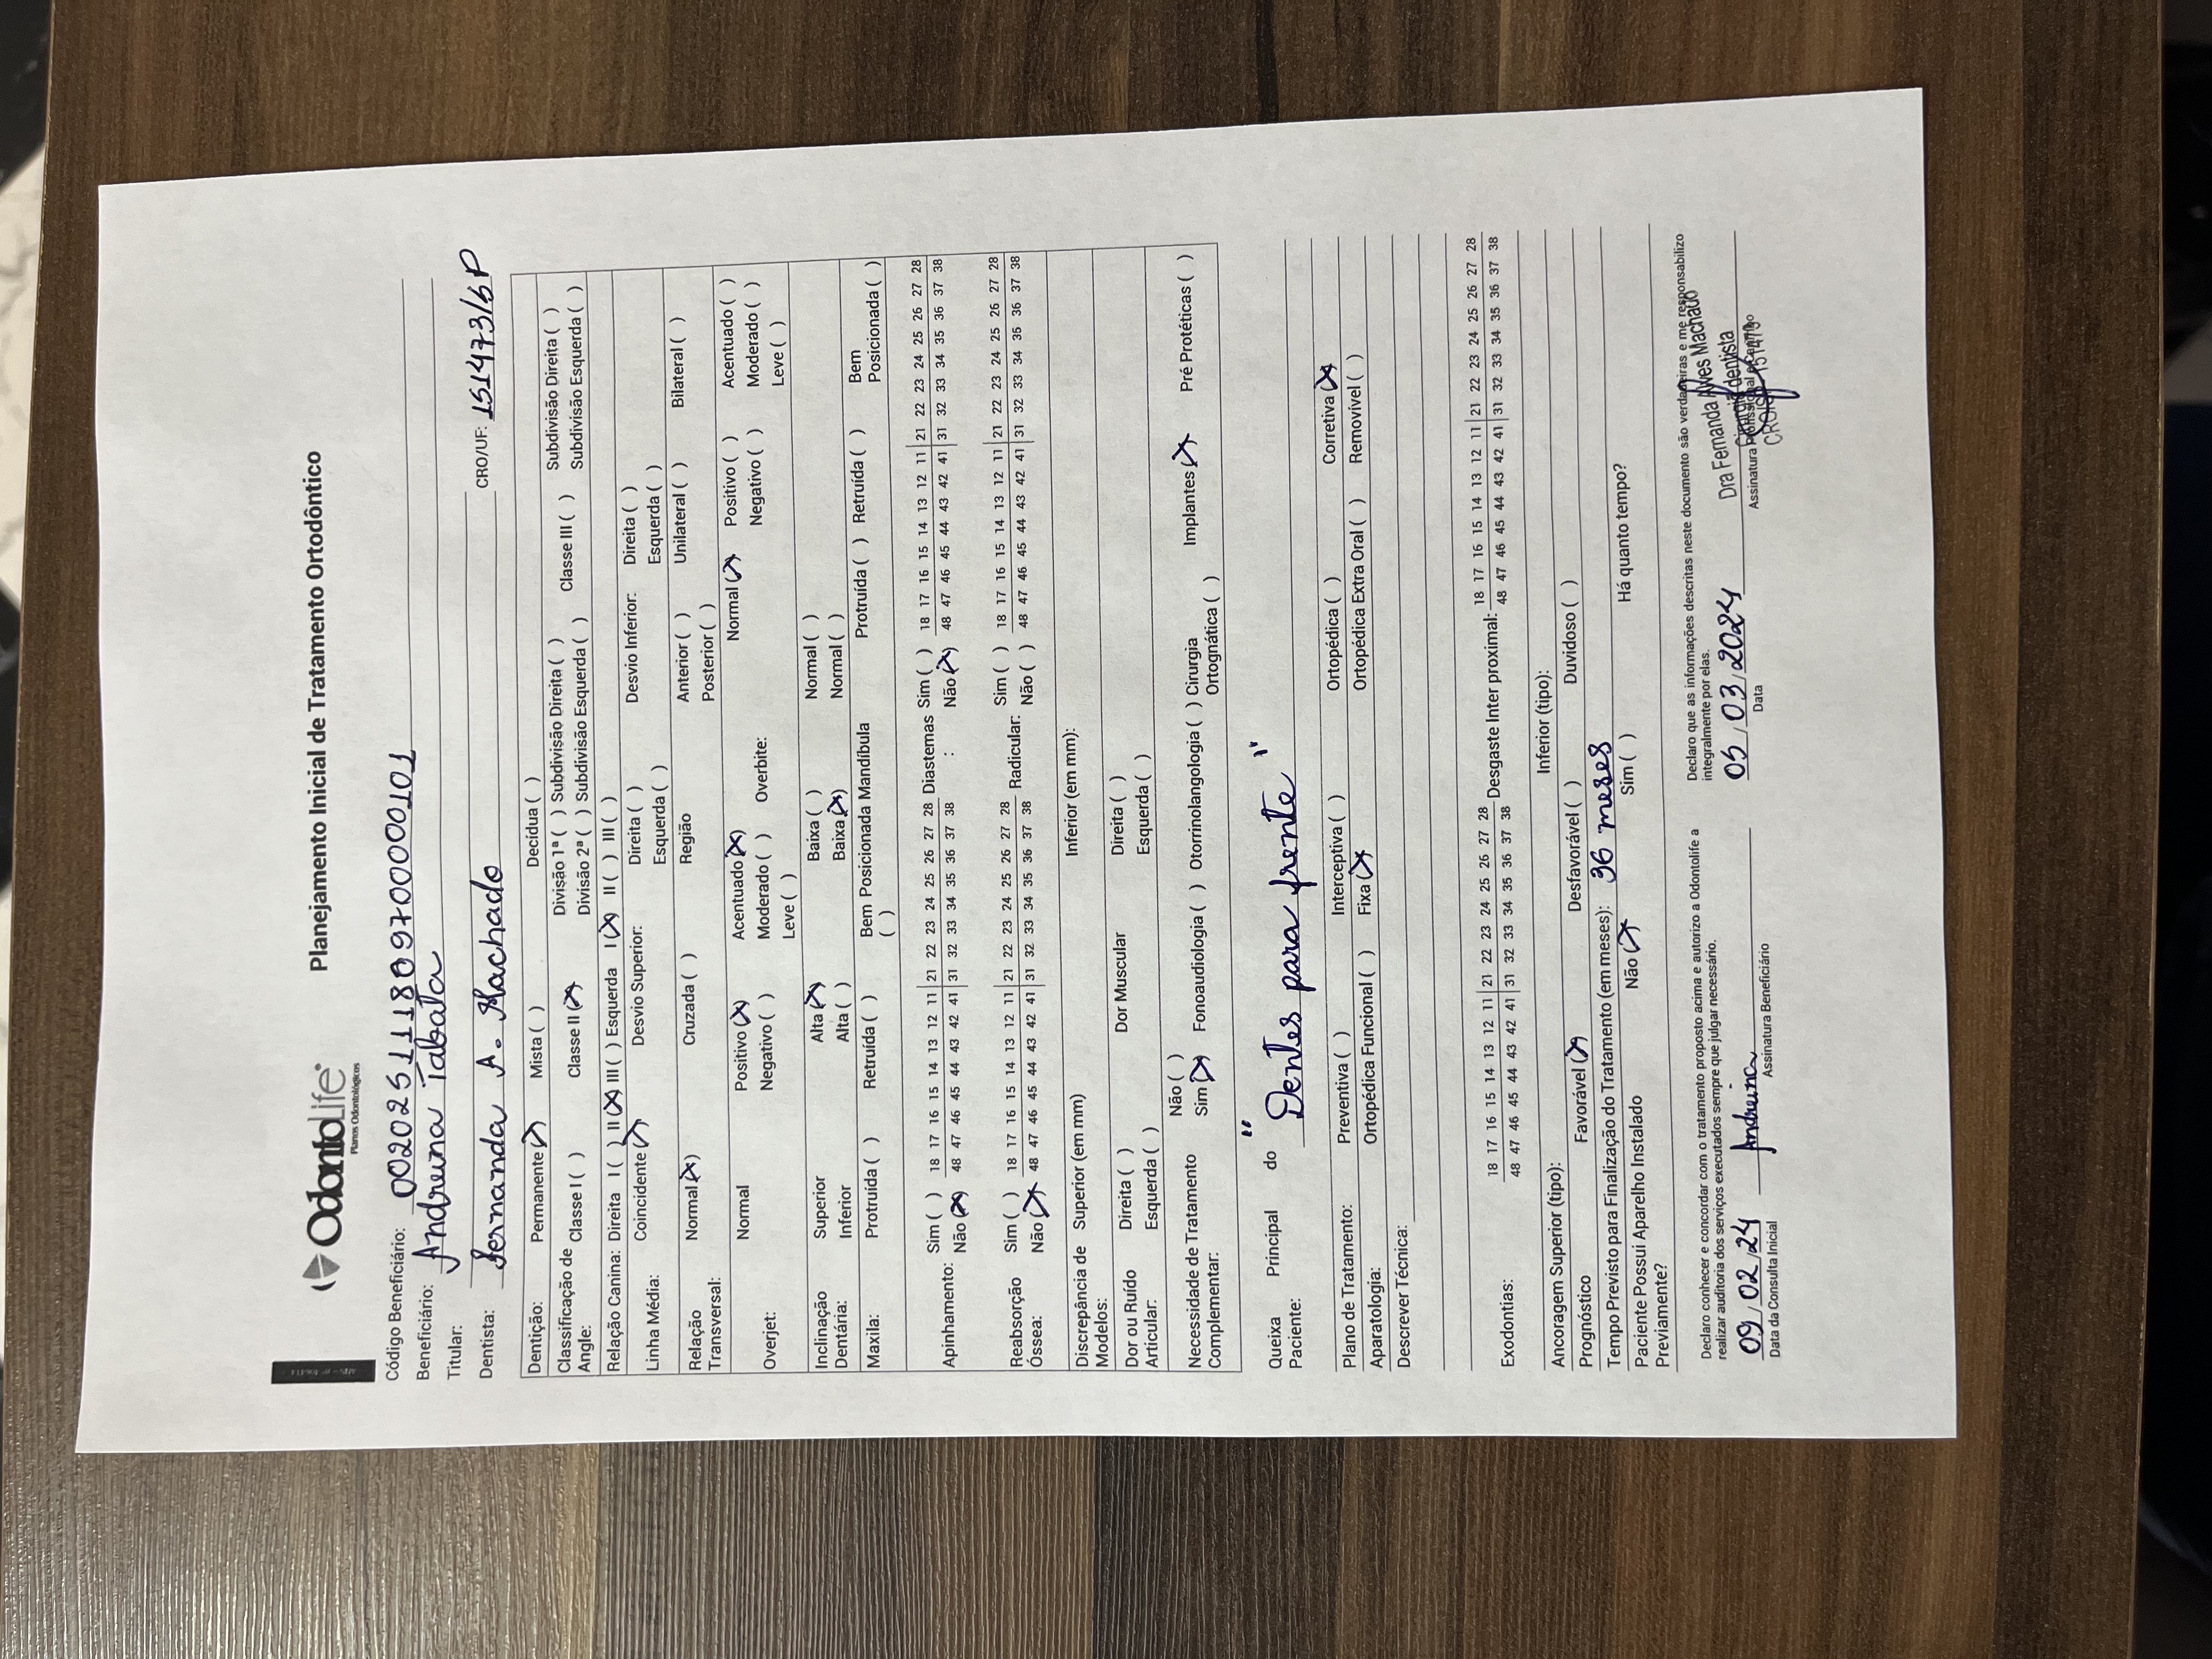 OdontoLife
Planos Odontológicos
Planejamento Inicial de Tratamento Ortodôntico
Código Beneficiário: 002025111809700000101
Beneficiário: Andreina Tabata
Titular:
Dentista: Fernanda A. Machado CRO/UF: 151473/SP
Dentição: Permanente (X) Mista ( ) Decídua ( )
Classificação de Angle: Classe I ( ) Classe II (X) Divisão 1ª ( ) Subdivisão Direita ( ) Classe III ( ) Subdivisão Direita ( )
Divisão 2ª ( ) Subdivisão Esquerda ( ) Subdivisão Esquerda ( )
Relação Canina: Direita I ( ) II (X) III ( ) Esquerda I (X) II ( ) III ( )
Linha Média: Coincidente (X) Desvio Superior: Direita ( ) Desvio Inferior: Direita ( )
Esquerda ( ) Esquerda ( )
Relação Transversal: Normal (X) Cruzada ( ) Região Anterior ( ) Unilateral ( ) Bilateral ( )
Posterior ( )
Overjet: Normal Positivo (X) Acentuado (X) Overbite: Normal (X) Positivo ( ) Acentuado ( )
Negativo ( ) Moderado ( ) Negativo ( ) Moderado ( )
Leve ( ) Leve ( )
Inclinação Dentária: Superior Alta (X) Baixa ( ) Normal ( )
Inferior Alta ( ) Baixa (X) Normal ( )
Maxila: Protruída ( ) Retruída ( ) Bem Posicionada ( ) Mandíbula Protruída ( ) Retruída ( ) Bem Posicionada ( )
Apinhamento: Sim ( ) 18 17 16 15 14 13 12 11 | 21 22 23 24 25 26 27 28 Diastemas: Sim ( ) 18 17 16 15 14 13 12 11 | 21 22 23 24 25 26 27 28
Não (X) 48 47 46 45 44 43 42 41 | 31 32 33 34 35 36 37 38 Não (X) 48 47 46 45 44 43 42 41 | 31 32 33 34 35 36 37 38
Reabsorção Óssea: Sim ( ) 18 17 16 15 14 13 12 11 | 21 22 23 24 25 26 27 28 Radicular: Sim ( ) 18 17 16 15 14 13 12 11 | 21 22 23 24 25 26 27 28
Não (X) 48 47 46 45 44 43 42 41 | 31 32 33 34 35 36 37 38 Não ( ) 48 47 46 45 44 43 42 41 | 31 32 33 34 35 36 37 38
Discrepância de Modelos: Superior (em mm) Inferior (em mm):
Dor ou Ruído Articular: Direita ( ) Dor Muscular Direita ( )
Esquerda ( ) Esquerda ( )
Necessidade de Tratamento Complementar: Não ( )
Sim (X) Fonoaudiologia ( ) Otorrinolangologia ( ) Cirurgia Ortognática ( ) Implantes (X) Pré Protéticas ( )
Queixa Principal do Paciente: "Dentes para frente"
Plano de Tratamento: Preventiva ( ) Interceptiva ( ) Ortopédica ( ) Corretiva (X)
Aparatologia: Ortopédica Funcional ( ) Fixa (X) Ortopédica Extra Oral ( ) Removível ( )
Descrever Técnica:
Exodontias: 18 17 16 15 14 13 12 11 | 21 22 23 24 25 26 27 28 Desgaste Inter proximal: 18 17 16 15 14 13 12 11 | 21 22 23 24 25 26 27 28
48 47 46 45 44 43 42 41 | 31 32 33 34 35 36 37 38 48 47 46 45 44 43 42 41 | 31 32 33 34 35 36 37 38
Ancoragem Superior (tipo): Inferior (tipo):
Prognóstico Favorável (X) Desfavorável ( ) Duvidoso ( )
Tempo Previsto para Finalização do Tratamento (em meses): 36 meses
Paciente Possui Aparelho Instalado Previamente? Não (X) Sim ( ) Há quanto tempo?
Declaro conhecer e concordar com o tratamento proposto acima e autorizo a Odontolife a
realizar auditoria dos serviços executados sempre que julgar necessário.
09/02/24 Andreina
Data da Consulta Inicial Assinatura Beneficiário
Declaro que as informações descritas neste documento são verdadeiras e me responsabilizo
integralmente por elas.
05/03/2024
Data
Dra Fernanda Alves Machado
Cirurgiã dentista
Assinatura